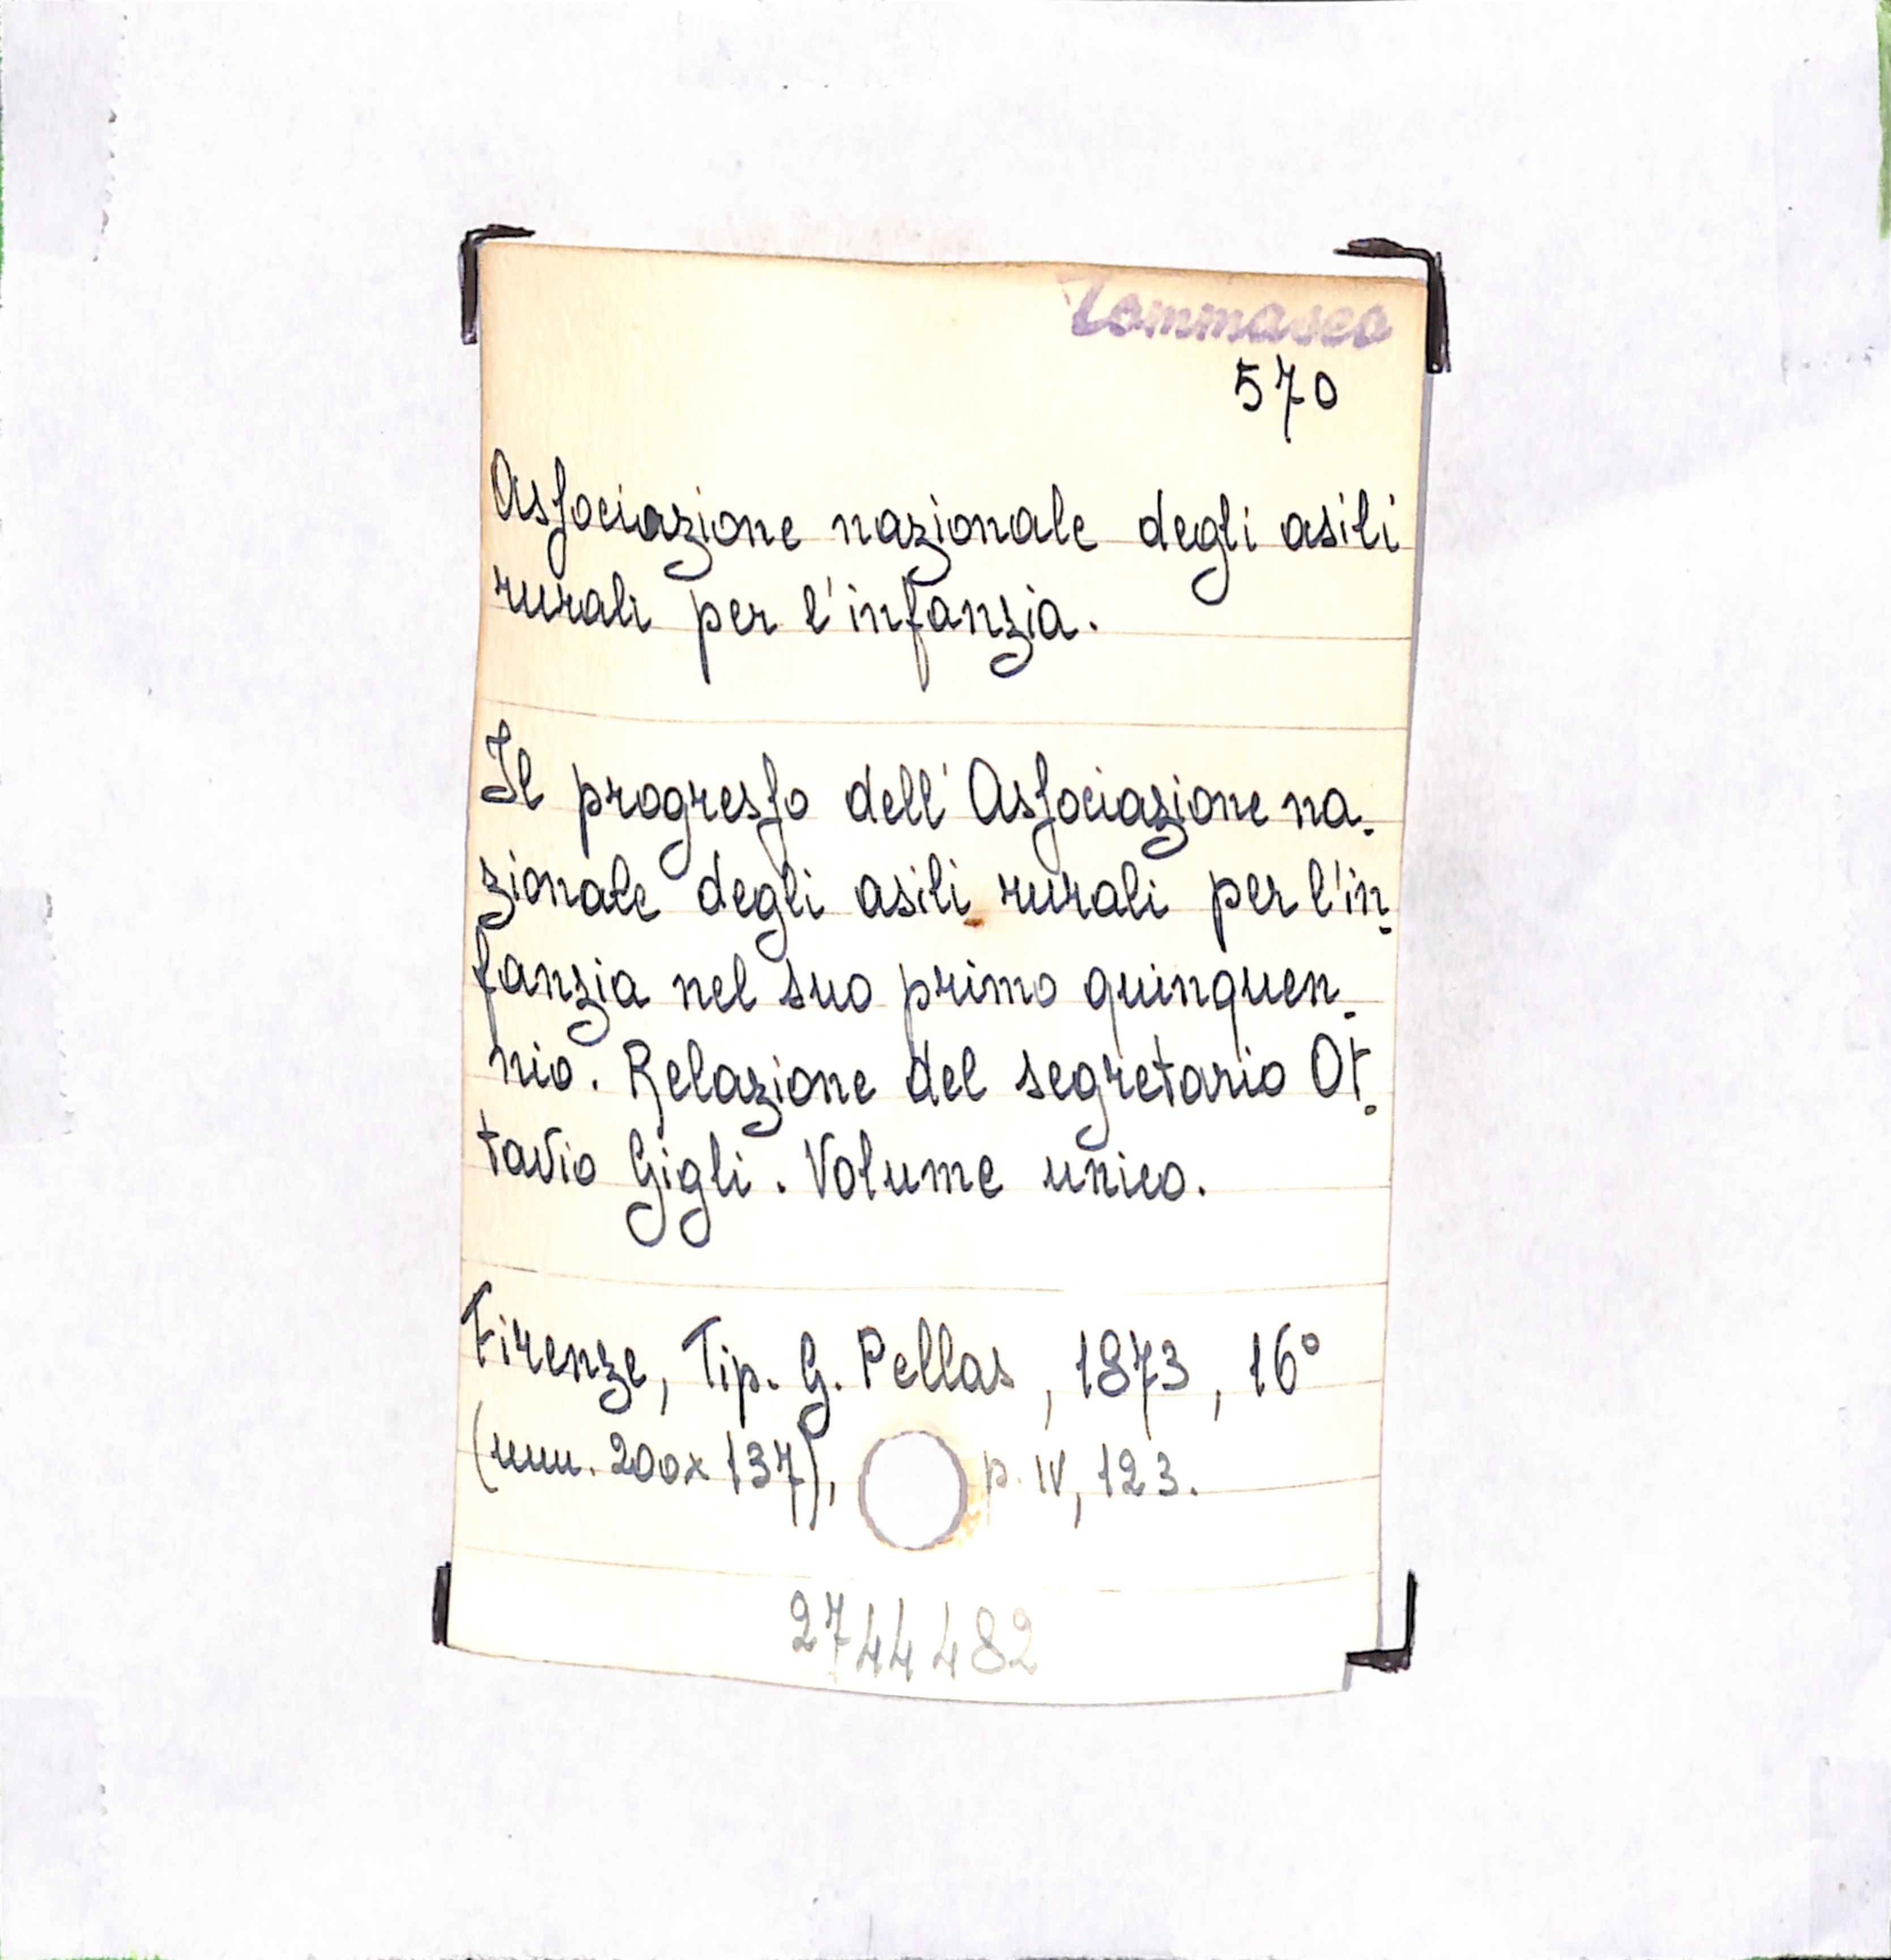 Tommaseo
570
Associazione nazionale degli asili
rurali per l'infanzia.
Il progresso dell'Associazione na-
zionale degli asili rurali per l'in-
fanzia nel suo primo quinquen-
nio. Relazione del segretario Ot-
tavio Gigli. Volume unico.
Firenze, Tip. G. Pellas, 1873, 16°
(mm. 200x137), p. IV, 123.
2744482